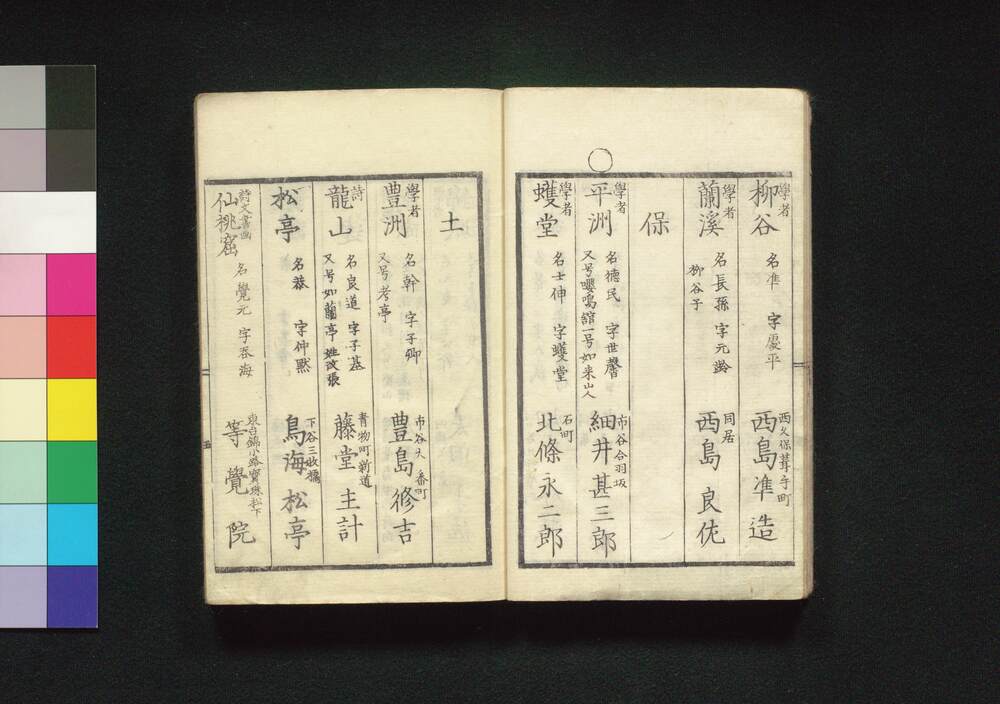 學者
柳谷
名準 字慶平
西久保葺手町
西島準造
學者
蘭溪
名長孫 字元齡
柳谷子
同居
西島良佐
保
學者
平洲
名德民 字世馨
又号嚶鳴舘一号如来山人
市谷合羽坂
細井甚三郎
學者
蠖堂
名士伸 字蠖堂
石町
北條永二郎
土
學者
豊洲
名幹 字子卿
又号考亭
市谷大番町
豊島修吉
詩
龍山
名良道 字子基
又号如蘭亭 姓改張
青物町新道
藤堂主計
松亭
名恭 字仲黙
下谷三枚橋
鳥海松亭
詩文書画
仙桃窟
名覺元 字呑海
東台錦小路寶珠松下
等覺院
五